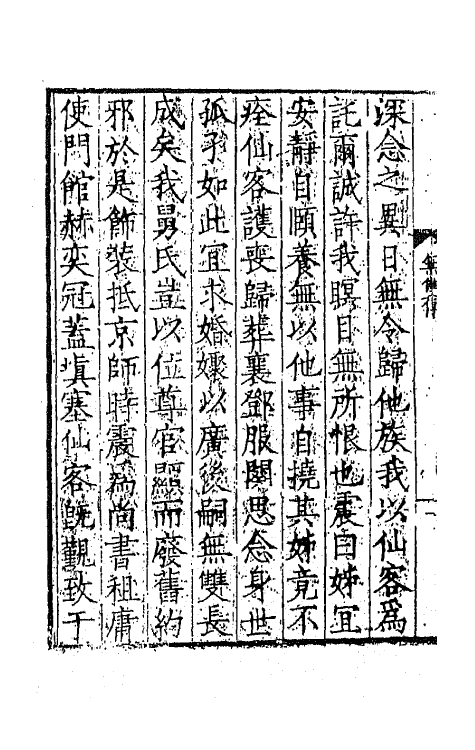 深念之異日無令歸他族我以仙客爲
託爾誠許我瞑目無所恨也震曰姊宜
安靜自頤養無以他事自撓其姊竟不
痊仙客護喪歸葬襄鄧服闋思念身世
孤孑如此宜求婚娶以廣後嗣無雙長
成矣我舅氏豈以位尊官顯而廢舊約
邪於是飾裝抵京師時震爲尚書租庸
使門館赫奕冠蓋塡塞仙客旣覲致于